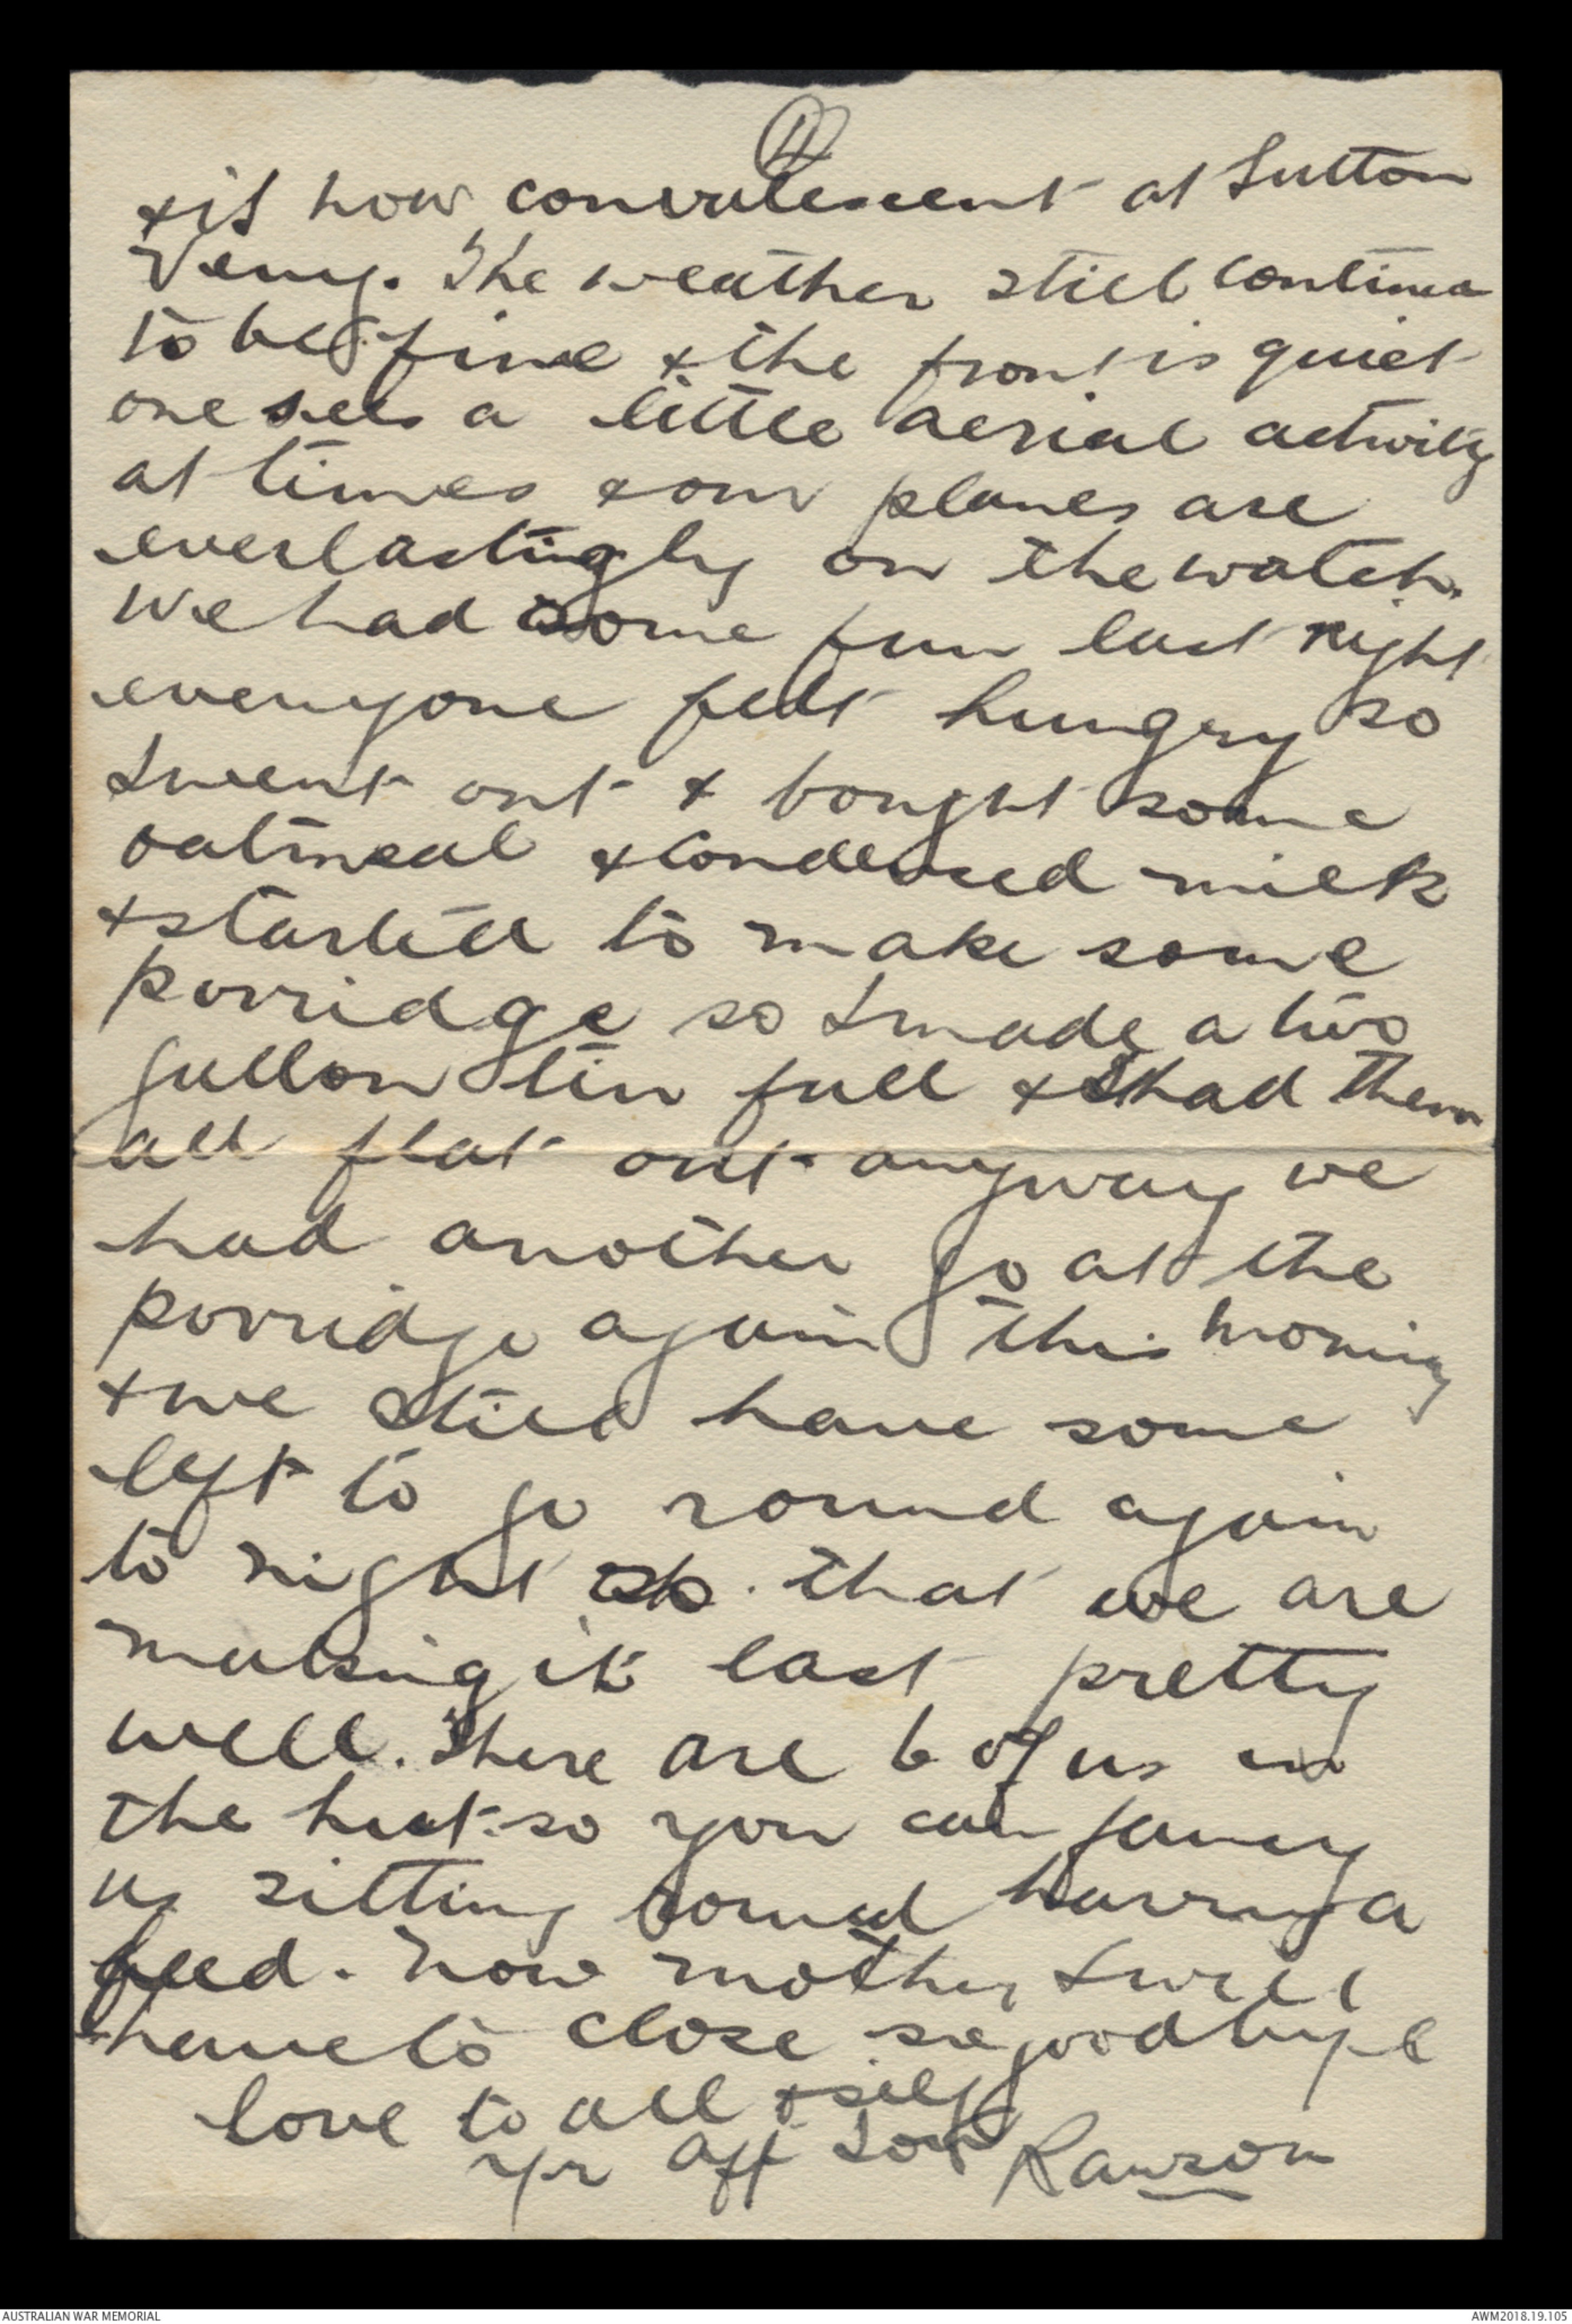 4
& is now convalescent at Sutton
Veny. The weather still continues
to be fine & the front is quiet
one sees a little aerial activity
at times & our planes are
everlastingly on the watch.
We had some fun last night
everyone felt hungry so
I went out & bought some
oatmeal & condensed milk
& started to make some
porridge so I made a two
gallon tin full & I had them
all flat out anyway we
had another go at the
porridge again this morning
& we still have some
left to go round again
to night so that we are
making it last pretty
well. There are 6 of us in
the hut so you can fancy
us sitting round having a
feed. Now mother I will
have to close so goodbye
love to all & self
Yr aff Son Rawson
AUSTRALIAN WAR MEMORIAL
AWM2018.19.105